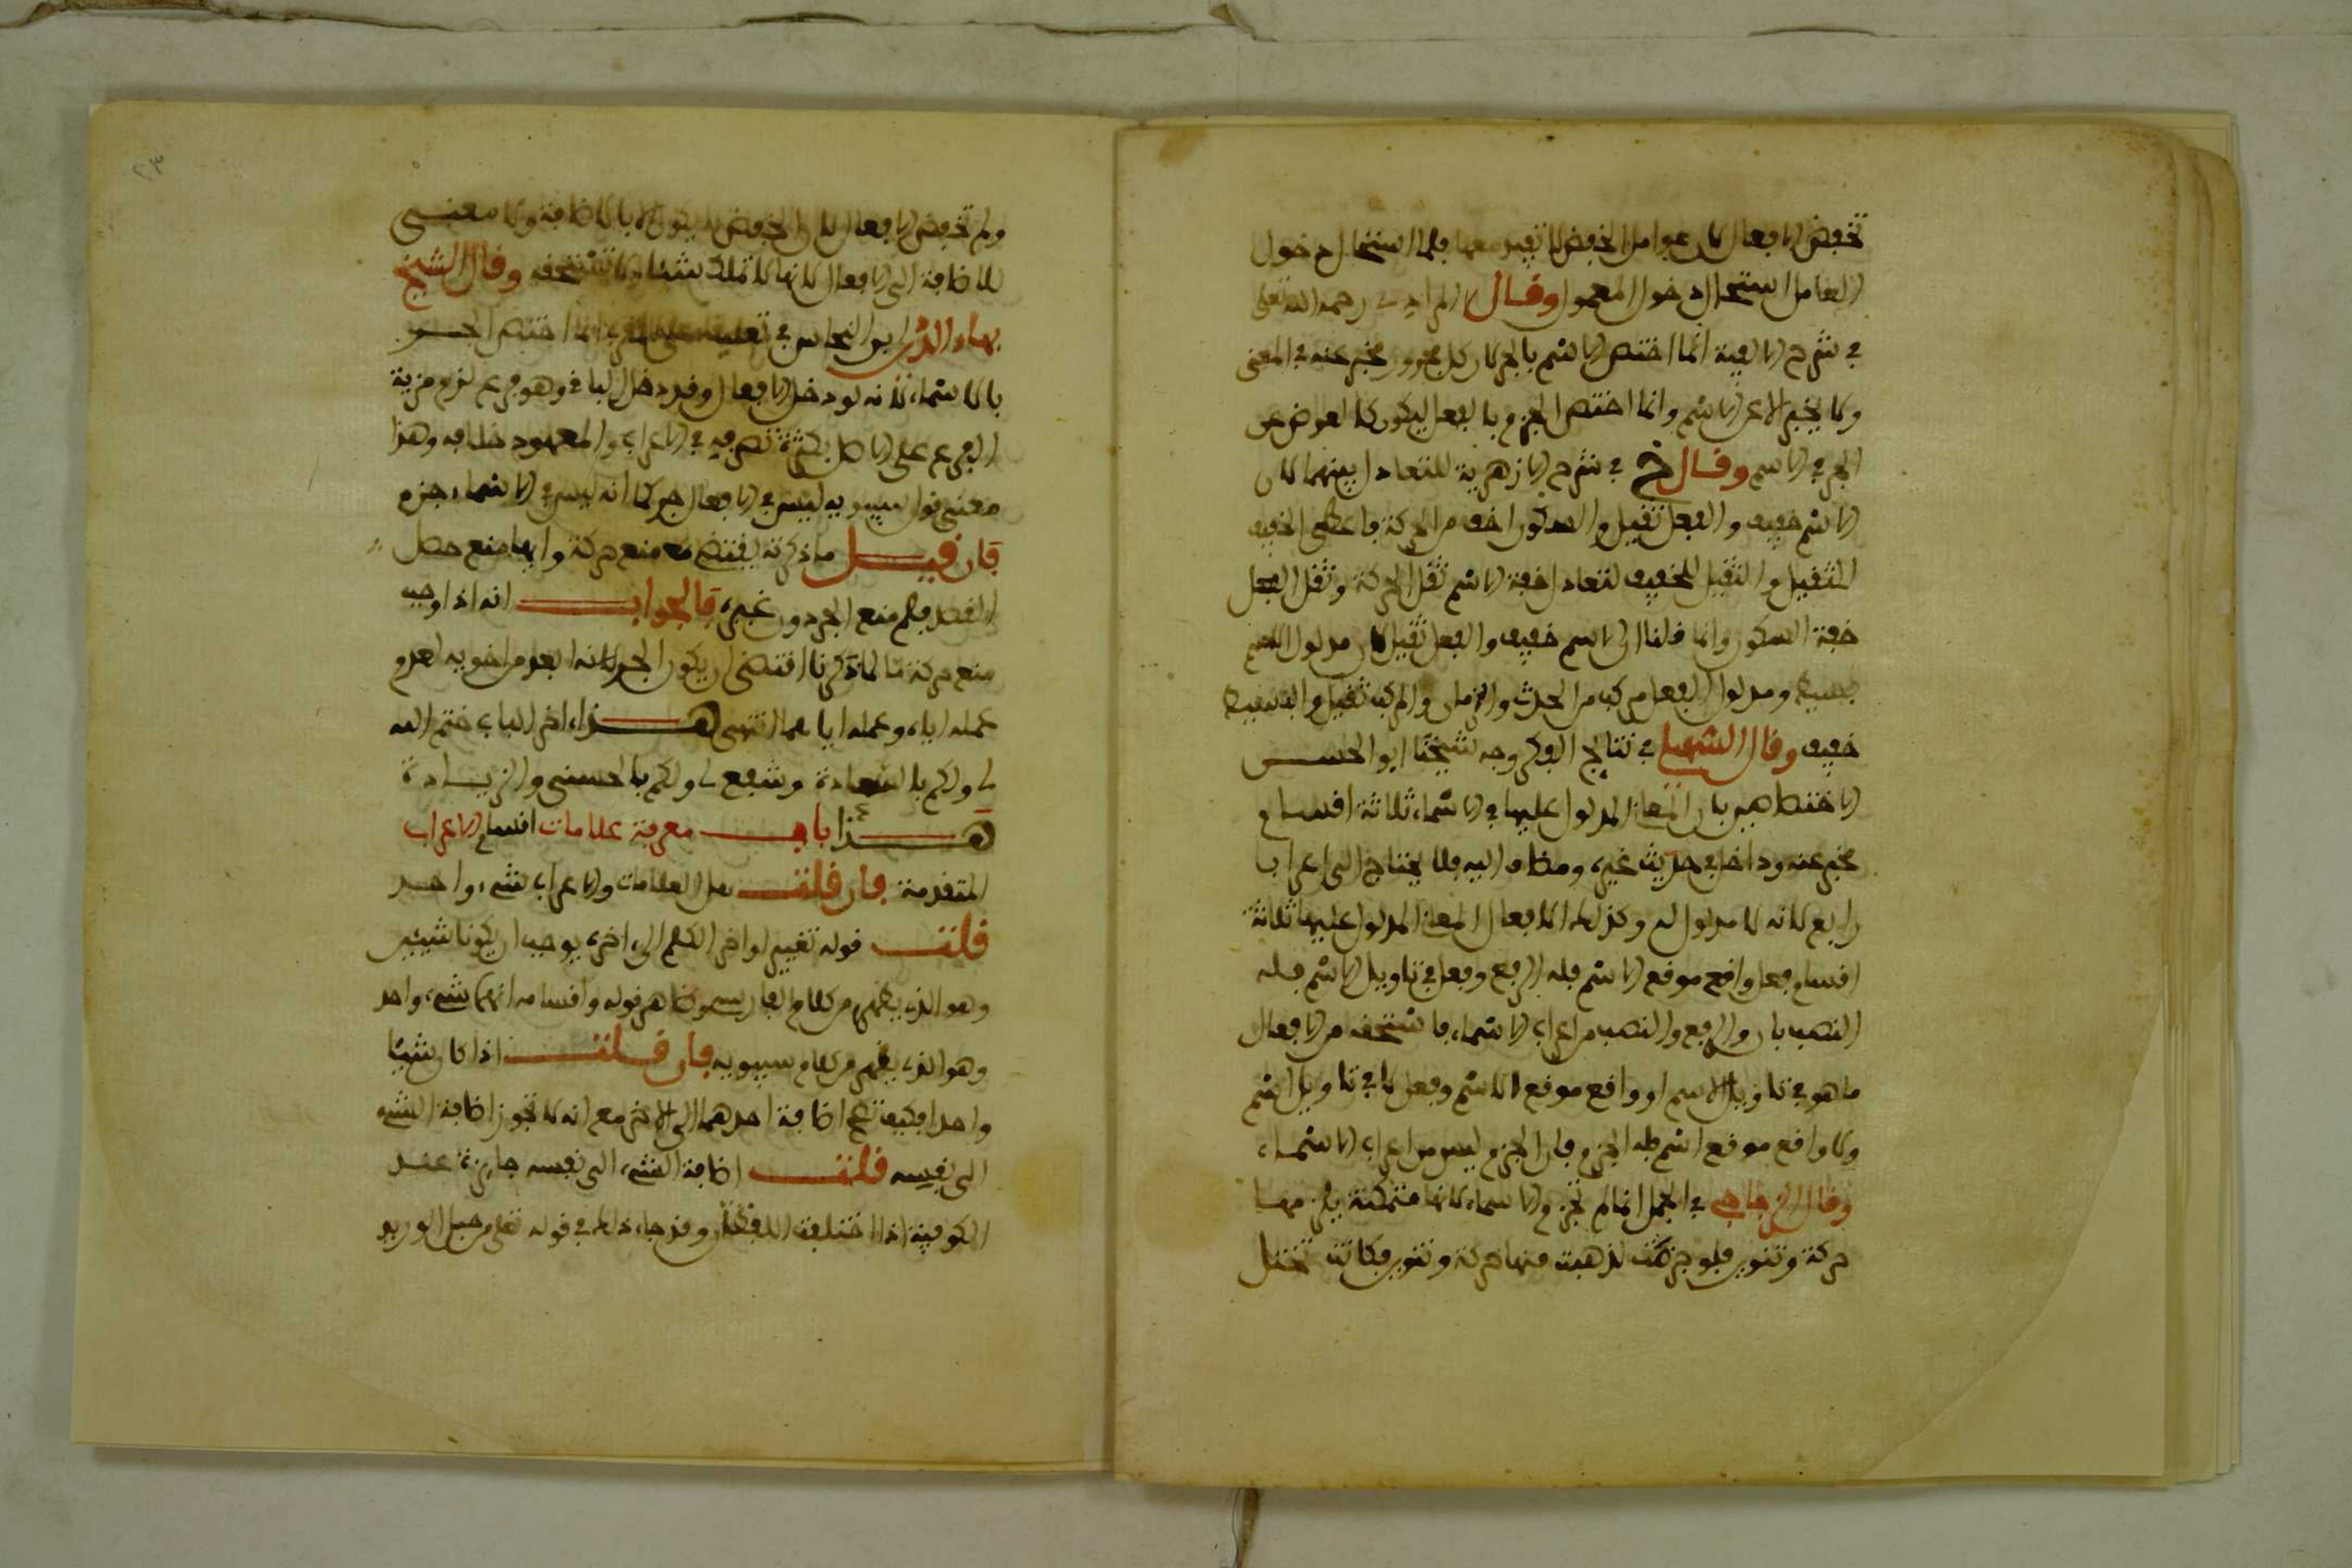 تخفض الافعال لان عوامل الخفض لا تفيد معها فلما استحال دخول
العامل استحال دخول المعمول وقال المرادي رحمه الله تعلى
في شرح الالفية انما اختص الاسم بالجر لان كل مجرور مخبر عنه في المعنى
ولا يخبر الا عن الاسم وانما اختص الجزم بالفعل ليكون كالعوض من
الجر في الاسم وقال خ في شرح الازهرية للتعادل بينهما لان
الاسم خفيف والفعل ثقيل والسكون اخف من الحركة فاعطى الخفيف
الثقيل والثقيل الخفيف لتعادل خفة الاسم ثقل الحركة وثقل الفعل
خفة السكون وانما قلنا ان الاسم خفيف والفعل ثقيل لان مدلول الاسم
بسيط ومدلول الفعل مركب من الحدث والزمان والمركب ثقيل والبسيط
خفيف وقال السهيلي في نتائج الفكر وجه شيخنا ابو الحسن
الاختصاصين بان المعاني المدلول عليها في الاسماء ثلاثة اقسام
مخبر عنه وداخل في حديث غيره ومضاف اليه فلا يحتاج الى اعراب
رابع لانه لا مدلول له وكذلك الافعال المعاني المدلول عليها ثلاثة
اقسام فعل واقع موقع الاسم فله الرفع وفعل في تاويل الاسم فله
النصب بان والرفع والنصب من اعراب الاسماء فاستحقه من الافعال
ما هو في تاويل الاسم او واقع موقع الاسم وفعل لا في تاويل اسم
ولا واقع موقع اسم فله الجزم فان الجزم ليس من اعراب الاسماء
وقال الزجاجي في الجمل انما لم تجزم الاسماء لانها متمكنة يلزمها
حركة وتنوين فلو جزمت لذهبت منها حركة وتنوين فكانت تختل
٢٣
ولم تخفض الافعال لان الخفض لا يكون الا بالاضافة ولا معنى
للاضافة الى الافعال لانها لا تملك شيئا ولا تستحقه وقال الشيخ
بهاء الدين ابن النحاس في تعليقه على المقرب انما اختص الجر
بالاسماء لانه لو دخل الافعال وقد دخل الباقي وهو فرع لزم مزية
الفرع على الاصل بكثرة تصرفه في الاعراب والمعهود خلافه وهذا
معنى قول سيبويه ليس في الافعال جر كما انه ليس في الاسماء جزم
فان قيل ما ذكرته يقتضي منع حركة وايها منع حصل
الفصل فلم منع الجر دون غيره فالجواب انه اذا وجب
منع حركة ما لما ذكرنا اقتضى ان يكون الجر لانه ابعد من اخويه لعدم
عمله اياه وعمله اياهما انتهى هذا اخر الباب ختم الله
لي ولكم بالسعادة وشفع لي ولكم بالحسنى والزيادة
هذا باب معرفة علامات اقسام الاعراب
المتقدمة فان قلت هل العلامات والاعراب شيء واحد
قلت قوله تغيير اواخر الكلم الى اخره يوجب ان يكونا شيئين
وهو الذي يفهم من كلام الفارسي وظاهر قوله واقسامه انهما شيء واحد
وهو الذي يفهم من كلام سيبويه فان قلت اذا كان شيئا
واحدا فكيف تصح اضافة احدهما الى الاخر مع انه لا تجوز اضافة الشيء
الى نفسه قلت اضافة الشيء الى نفسه جايزة عند
الكوفية اذا اختلف اللفظان وقد جاء ذلك في قوله تعلى من حبل الوريد